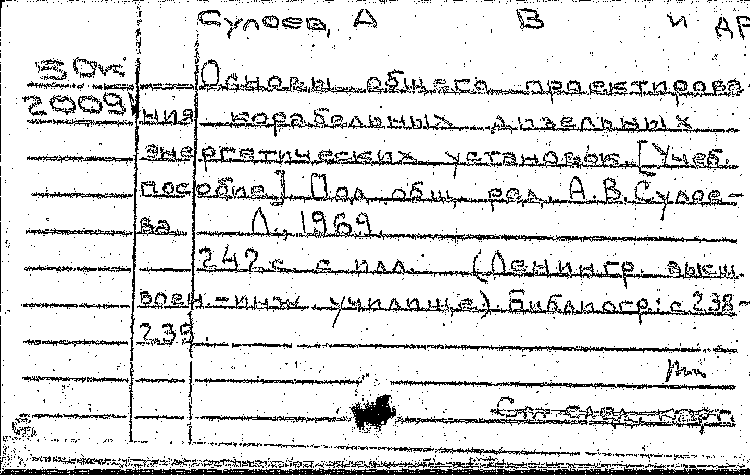 Сулоев, А В и др
50к Основы общего проектирова
2009 ния корабельных дизельных
энергетических установок. [Учеб.
пособие] Под общ. ред. А.В.Сулое-
ва Л., 1969.
247 с. с илл. (Ленингр. высш.
воен-инж. училище). Библиогр: с 238-
239.
См след. карт